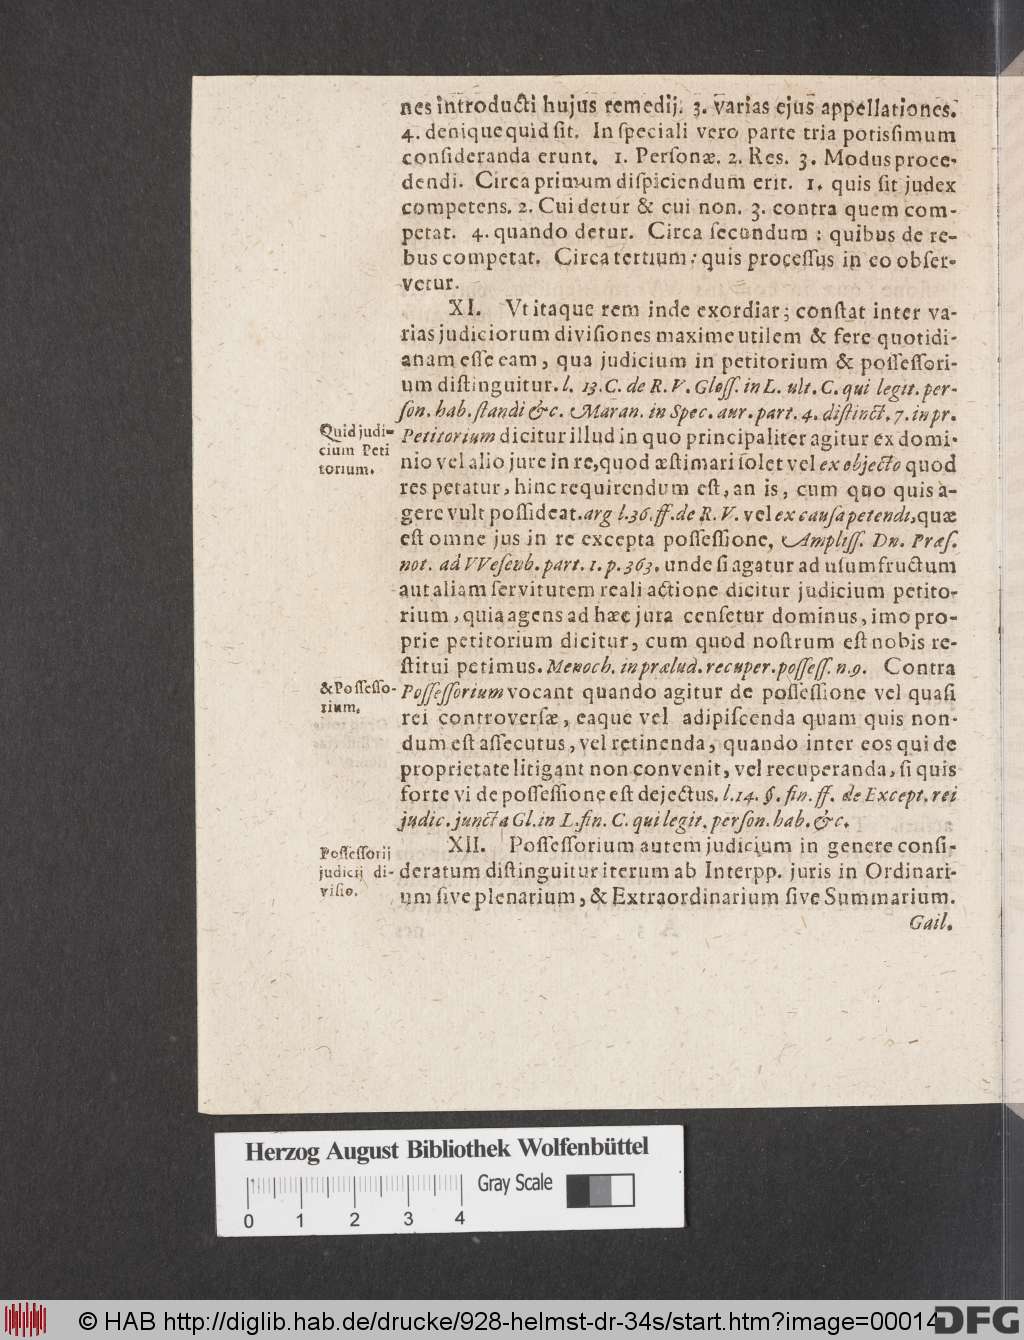 nes introducti hujus remedij. 3. varias ejus appellationes.
4. denique quid ſit. In ſpeciali vero parte tria potisſimum
conſideranda erunt. 1. Perſonæ. 2. Res. 3. Modus proce-
dendi. Circa primum diſpiciendum erit. 1. quis ſit judex
competens. 2. Cui detur & cui non. 3. contra quem com-
petat. 4. quando detur. Circa ſecundum : quibus de re-
bus competat. Circa tertium : quis proceſſus in eo obſer-
vetur.
XI. Vt itaque rem inde exordiar; conſtat inter va-
rias judiciorum diviſiones maxime utilem & fere quotidi-
anam eſſe eam, qua judicium in petitorium & poſſeſſori-
um diſtinguitur. l. 13. C. de R. V. Gloſſ. in L. ult. C. qui legit. per-
ſon. hab. ſtandi &c. Maran. in Spec. aur. part. 4. diſtinct. 7. in pr.
Quid judi-
cium Peti
torium.
Petitorium dicitur illud in quo principaliter agitur ex domi-
nio vel alio jure in re, quod æſtimari ſolet vel ex objecto quod
res petatur, hinc requirendum eſt, an is, cum quo quis a-
gere vult poſſideat. arg l. 36. ff. de R. V. vel ex cauſa petendi, quæ
eſt omne jus in re excepta poſſeſſione, Ampliſſ. Dn. Præſ.
not. ad VVeſevb. part. 1. p. 363. unde ſi agatur ad uſumfructum
aut aliam ſervitutem reali actione dicitur judicium petito-
rium, quia agens ad hæc jura cenſetur dominus, imo pro-
prie petitorium dicitur, cum quod noſtrum eſt nobis re-
ſtitui petimus. Menoch. in prælud. recuper. poſſeſſ. n. 9. Contra
& Poſſeſſo-
rium.
Poſſeſſorium vocant quando agitur de poſſeſſione vel quaſi
rei controverſæ, eaque vel adipiſcenda quam quis non-
dum eſt aſſecutus, vel retinenda, quando inter eos qui de
proprietate litigant non convenit, vel recuperanda, ſi quis
forte vi de poſſeſſione eſt dejectus. l. 14. §. fin. ff. de Except. rei
judic. juncta Gl. in L. fin. C. qui legit. perſon. hab. &c.
Poſſeſſorij
judicij di-
viſio.
XII. Poſſeſſorium autem judicium in genere conſi-
deratum diſtinguitur iterum ab Interpp. juris in Ordinari-
um ſive plenarium, & Extraordinarium ſive Summarium.
Gail.
Herzog August Bibliothek Wolfenbüttel
Gray Scale
0 1 2 3 4
© HAB http://diglib.hab.de/drucke/928-helmst-dr-34s/start.htm?image=00014
DFG